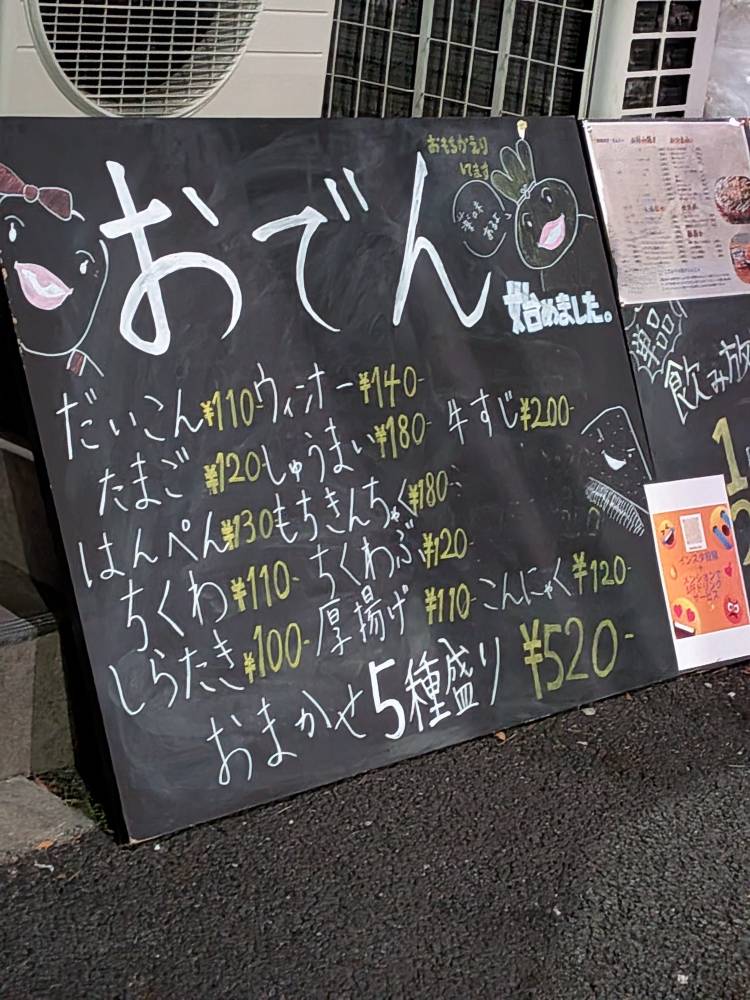 おもちかえり
してます
おでん
始めました。
だいこん ¥110- ウィンナー ¥140-
たまご ¥120- しゅうまい ¥180- 牛すじ ¥200-
はんぺん ¥130 もちきんちゃく ¥180-
ちくわ ¥110- ちくわぶ ¥120-
しらたき ¥100- 厚揚げ ¥110- こんにゃく ¥120-
おまかせ 5種盛り ¥520-
単品
飲み放
1
インスタ投稿
サービス